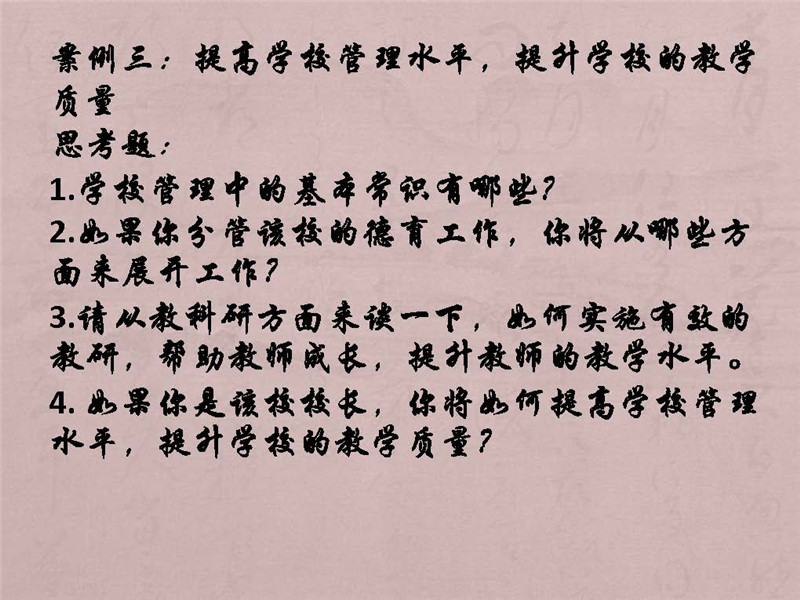 案例三：提高学校管理水平，提升学校的教学
质量
思考题：
1.学校管理中的基本常识有哪些？
2.如果你分管该校的德育工作，你将从哪些方
面来展开工作？
3.请从教科研方面来谈一下，如何实施有效的
教研，帮助教师成长，提升教师的教学水平。
4. 如果你是该校校长，你将如何提高学校管理
水平，提升学校的教学质量？